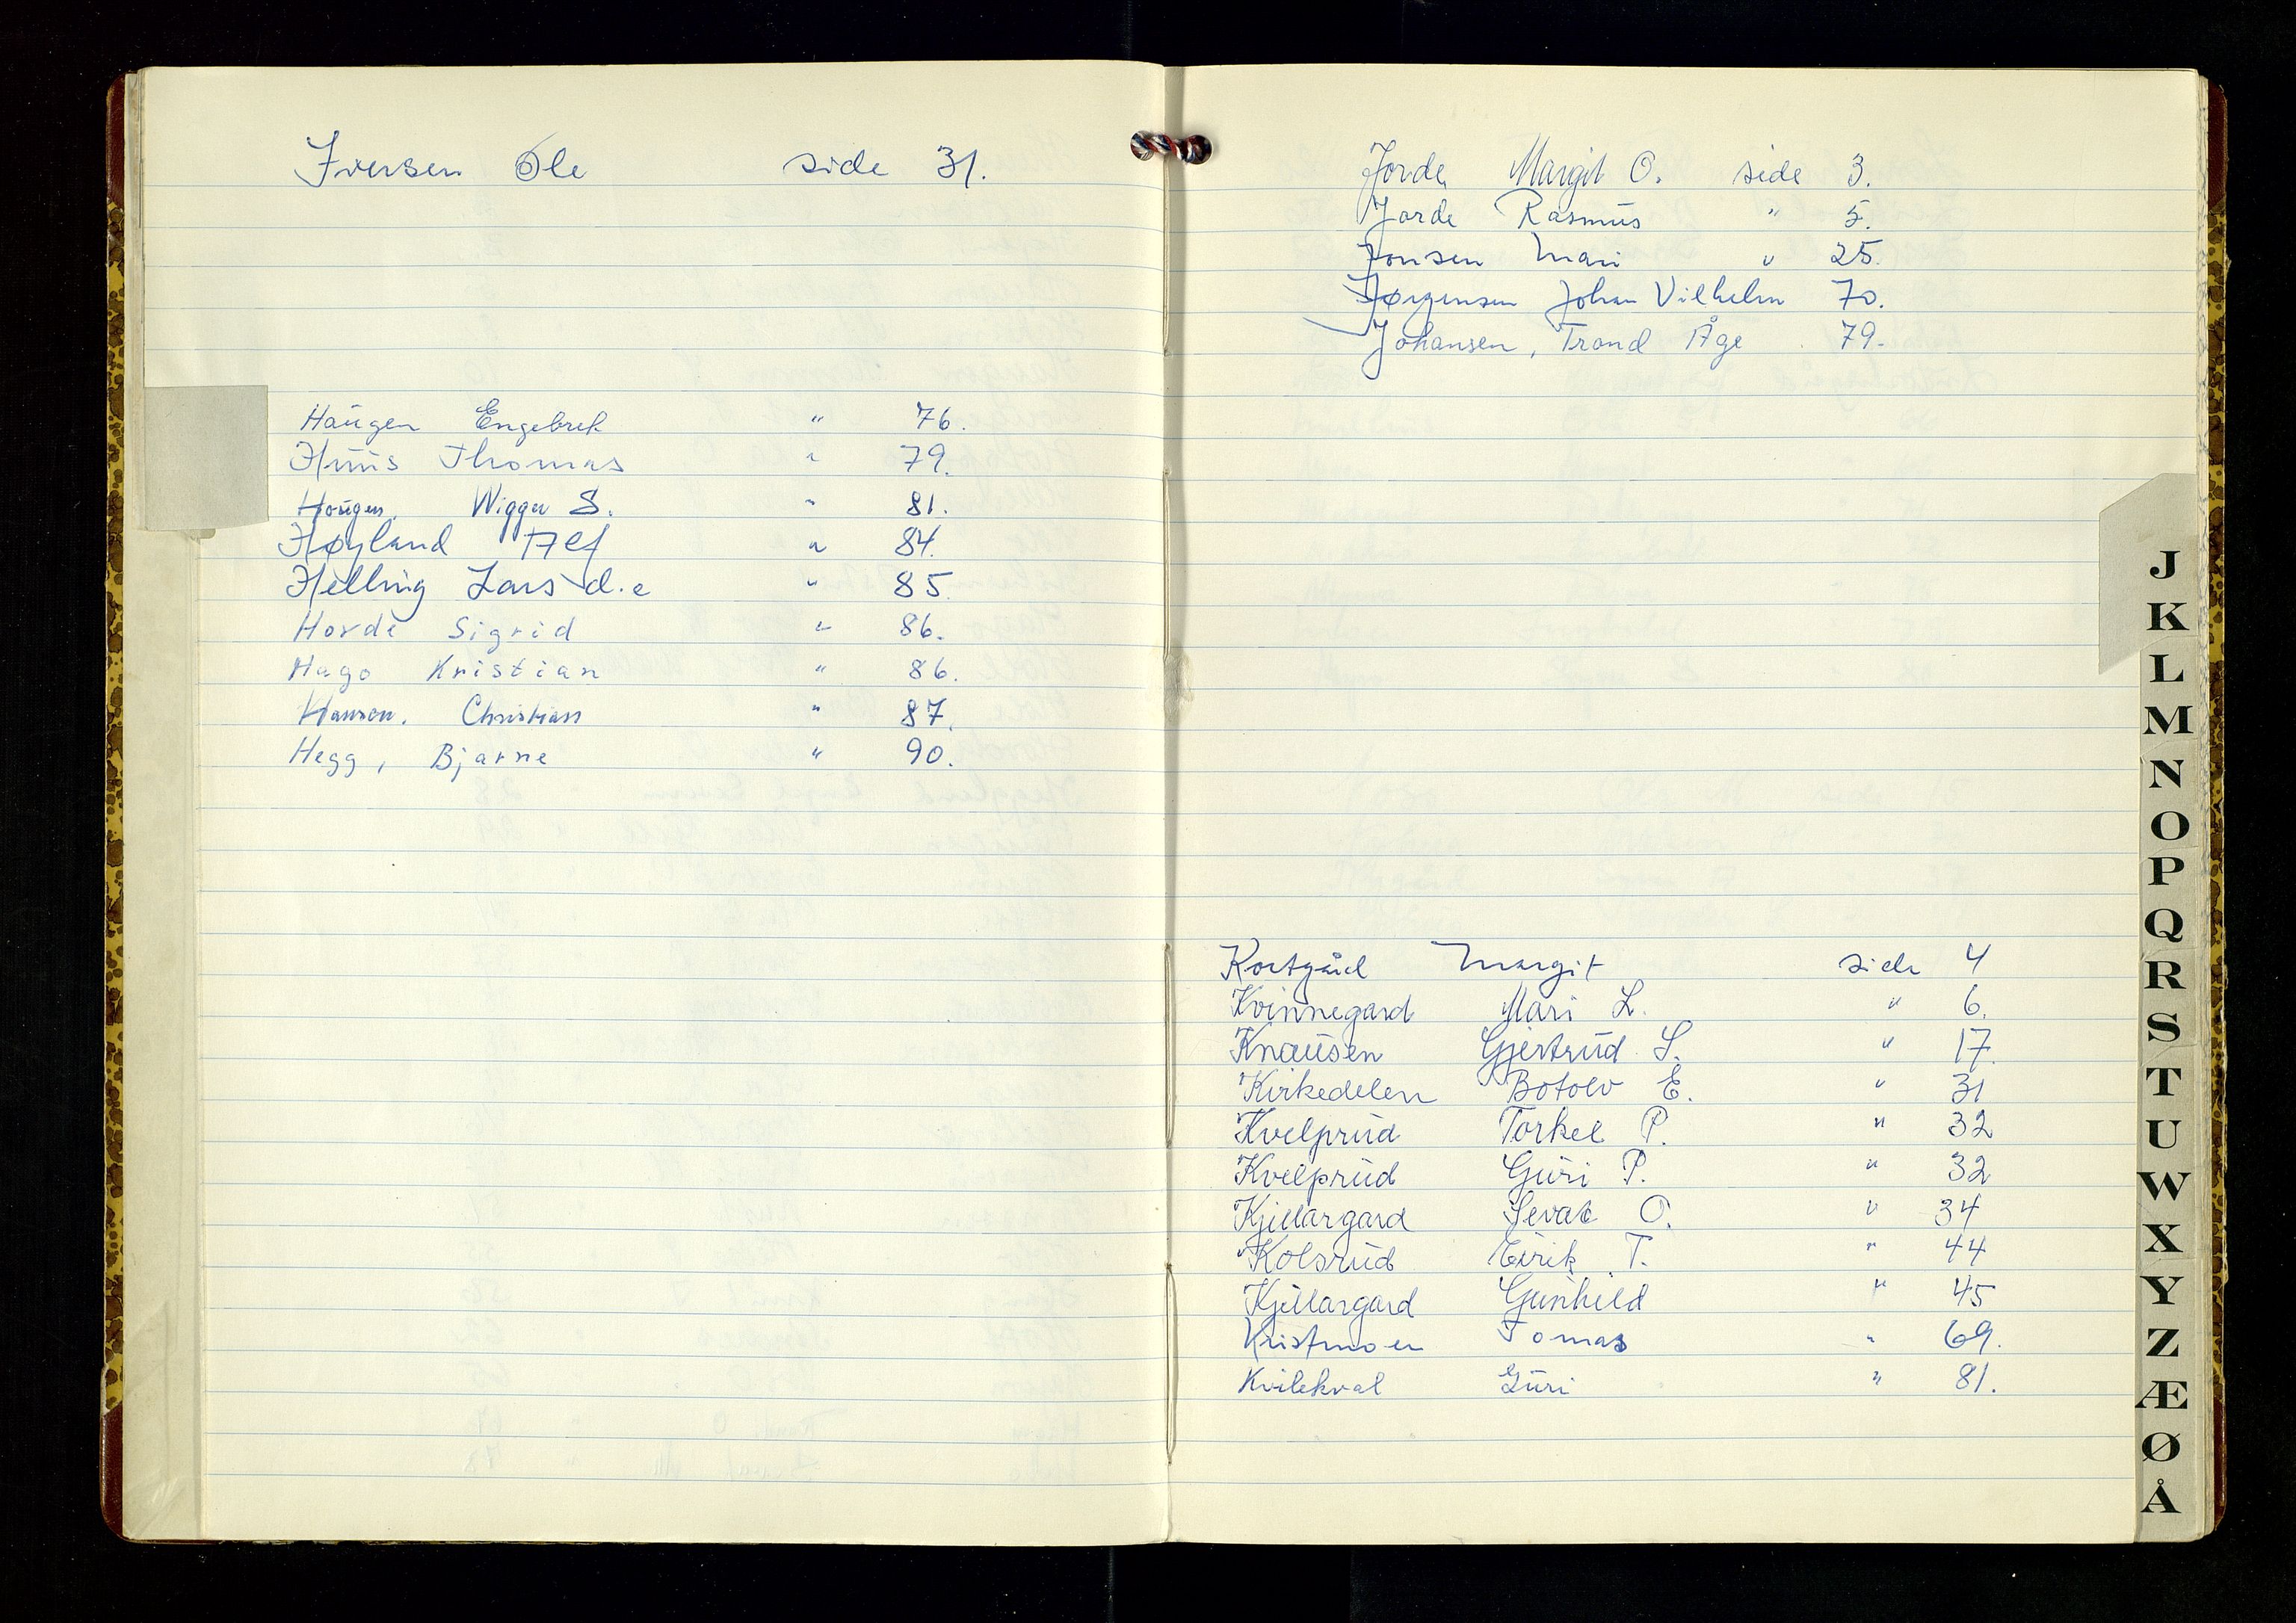 Iversen Ole side 31.
Haugen Engebret " 76.
Huus Thomas " 79.
Haugen, Wigger S. " 81.
Høyland Alf " 84.
Helling Lars d.e " 85.
Hovde Sigrid " 86.
Hago Kristian " 86.
Hanson, Christian " 87.
Hegg, Bjarne " 90.
Jorde, Margit O. side 3.
Jorde Rasmus " 5.
Jonsen Mari " 25.
Jørgensen Johan Vilhelm 70.
Johansen, Trond Åge 79.
Kortgård Margit side 4
Kvinnegard Mari L. " 6.
Knausen Gjertrud S. " 17.
Kirkedelen Botolv E. " 31
Kvelprud Torkel P. " 32
Kvelprud Guri P. " 32
Kjellargard Sevat O. " 34
Kolsrud Eirik T. " 44
Kjellargard Gunhild " 45
Kristmoen Tomas " 69.
Kvilekval Guri " 81.
J
K
L
M
N
O
P
Q
R
S
T
U
W
X
Y
Z
Æ
Ø
Å